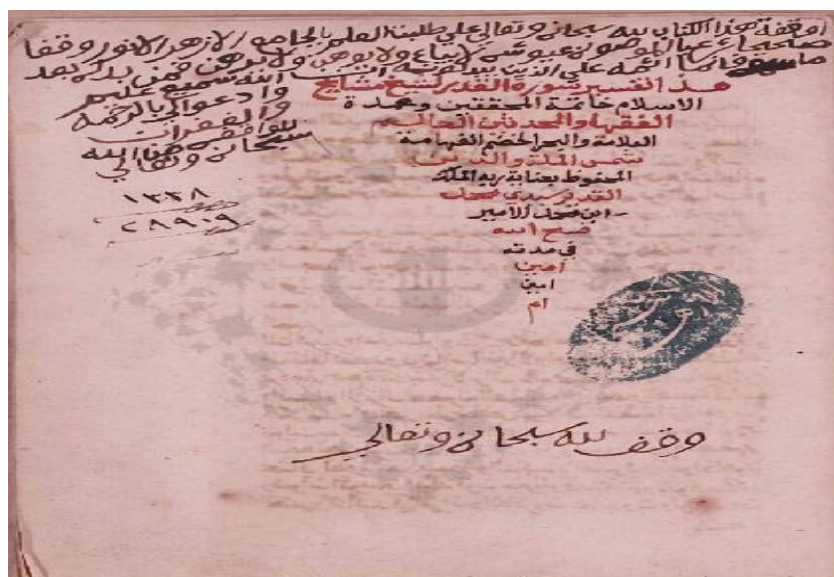 اوقف هذا الكتاب لله سبحانه وتعالى على طلبة العلم بالجامع الازهر الانور وقفا
صحيحا عيوشه لايباع ولا يوهب ولا يرهن فمن بدله بعد
ماسمعه فانما اثمه على الذين يبدلونه ان الله سميع عليم
وادعوا لي بالرحمة
والغفران
سبحانه وتعالى
١٣٣٨
٢٨٩٠٩
هذا تفسير سورة القدر لشيخ مشايخ
الاسلام خاتمة المحققين وعمدة
الفقها والمحدثين العالم
العلامة والبحر الخضم الفهامة
شمس الملة والدين
المحفوظ بعناية ربه الملك
القدير سيدي محمد
ابن محمد الامير
فسح الله
في مدته
امين
امين
ام
وقف لله سبحانه وتعالي